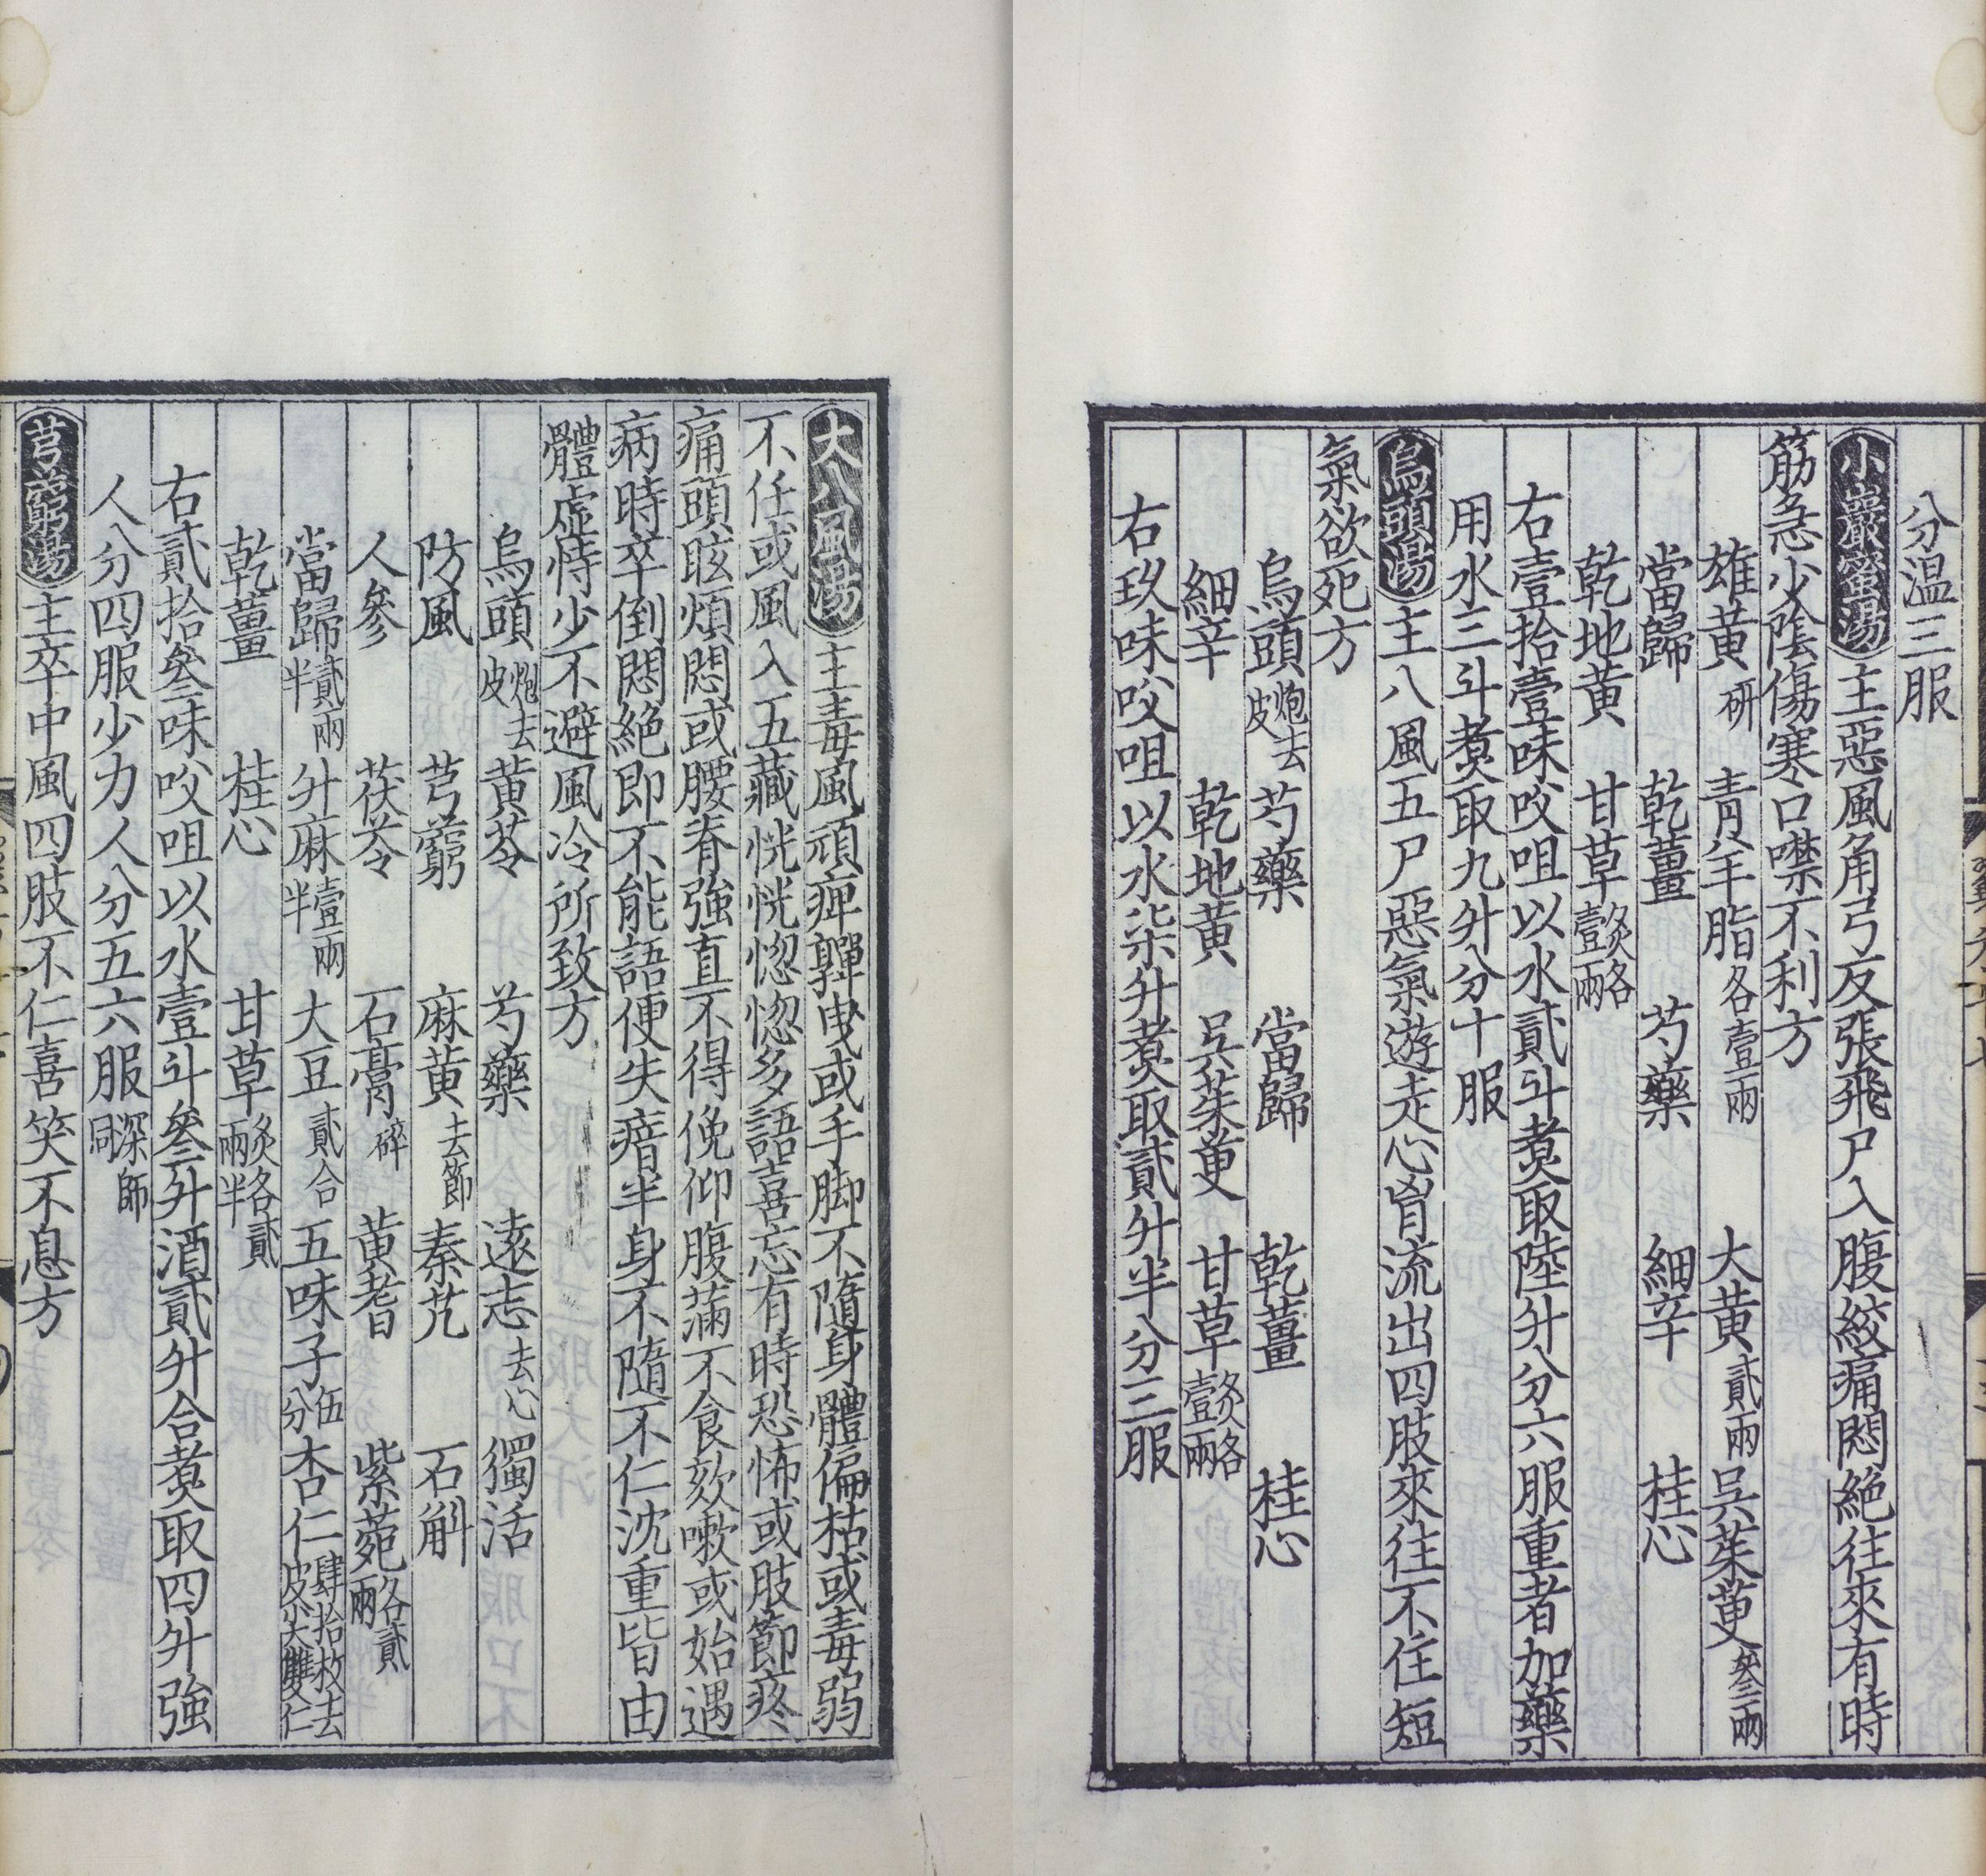 分温三服
小巖蜜湯主惡風角弓反張飛尸入腹絞痛悶絶往來有時
筋急少陰傷寒口噤不利方
雄黃研 青羊脂各壹兩 大黃貳兩 吳茱萸叄兩
當歸 乾薑 芍藥 細辛 桂心
乾地黃 甘草炙各壹兩
右壹拾壹味㕮咀以水貳斗煑取陸升分六服重者加藥
用水三斗煑取九升分十服
烏頭湯主八風五尸惡氣遊走心胷流出四肢來往不住短
氣欲死方
烏頭炮去皮 芍藥 當歸 乾薑 桂心
細辛 乾地黃 吳茱萸 甘草炙各壹兩
右玖味㕮咀以水柒升煑取貳升半分三服
大八風湯主毒風頑痺嚲曳或手脚不隨身體偏枯或毒弱
不任或風入五藏恍恍惚惚多語喜忘有時恐怖或肢節疼
痛頭眩煩悶或腰脊強直不得俛仰腹滿不食欬嗽或始遇
病時卒倒悶絶即不能語便失瘖半身不隨不仁沈重皆由
體虛恃少不避風冷所致方
烏頭炮去皮 黃芩 芍藥 遠志去心 獨活
防風 芎藭 麻黃去節 秦艽 石斛
人參 茯苓 石膏碎 黃耆 紫菀各貳兩
當歸貳兩半 升麻壹兩半 大豆貳合 五味子伍分 杏仁肆拾枚去皮尖雙仁
乾薑 桂心 甘草炙各貳兩半
右貳拾叄味㕮咀以水壹斗叄升酒貳升合煑取四升強
人分四服少力人分五六服深師同
芎藭湯主卒中風四肢不仁喜笑不息方